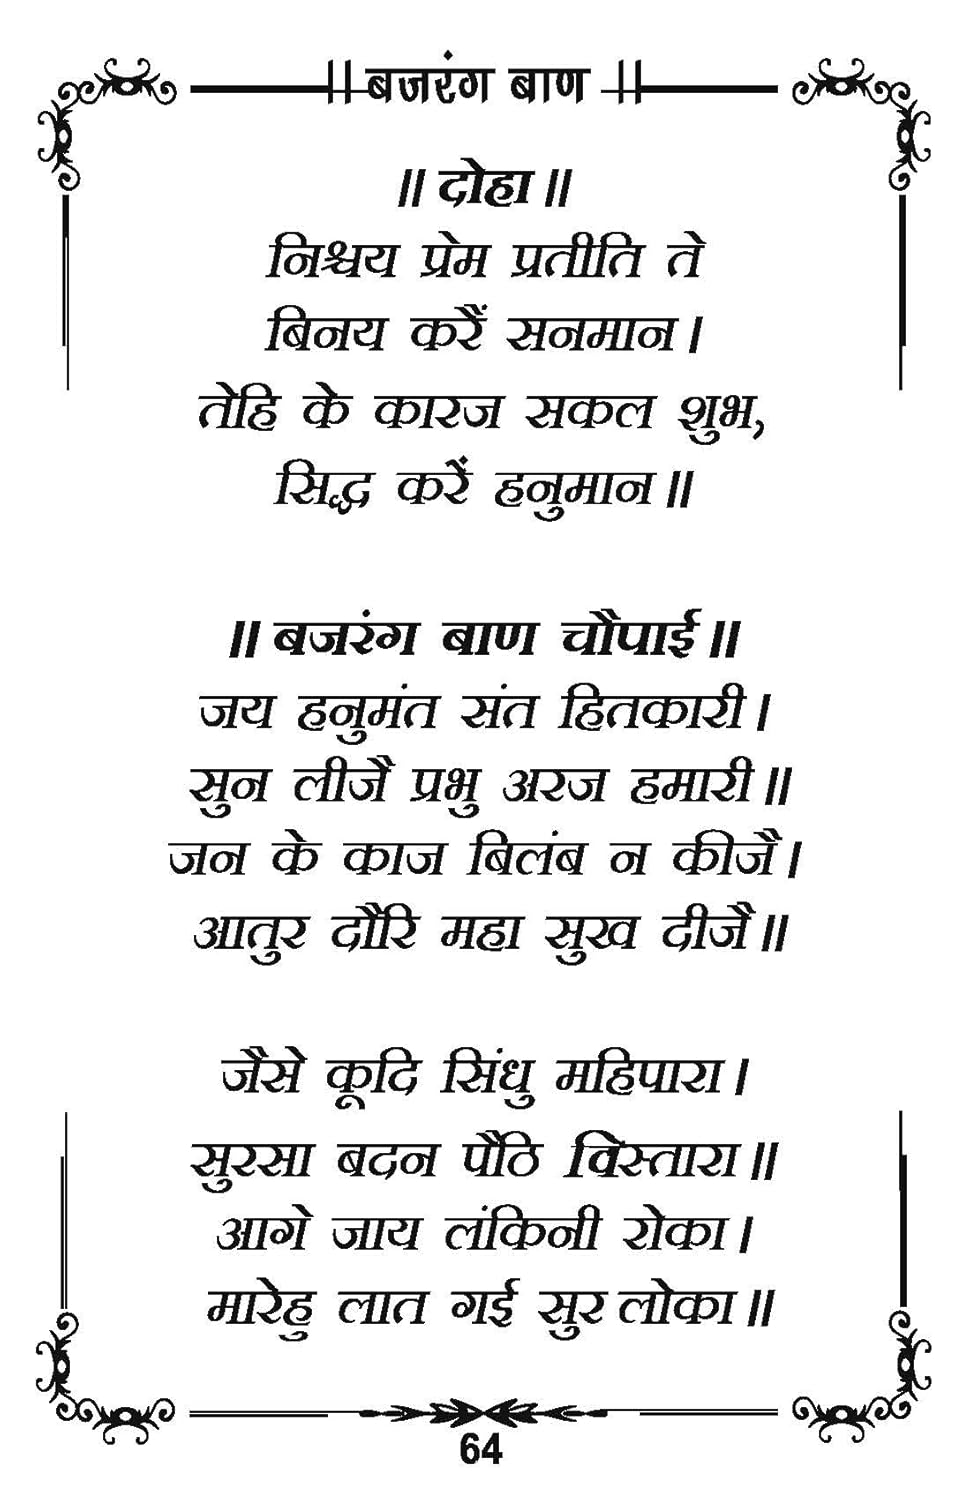 ||बजरंग बाण||
॥ दोहा ॥
निश्चय प्रेम प्रतीति ते
बिनय करैं सनमान।
तेहि के कारज सकल शुभ,
सिद्ध करें हनुमान॥
॥ बजरंग बाण चौपाई॥
जय हनुमंत संत हितकारी।
सुन लीजै प्रभु अरज हमारी॥
जन के काज बिलंब न कीजै।
आतुर दौरि महा सुख दीजै॥
जैसे कूदि सिंधु महिपारा।
सुरसा बदन पैठि विस्तारा॥
आगे जाय लंकिनी रोका।
मारेहु लात गई सुर लोका॥
64